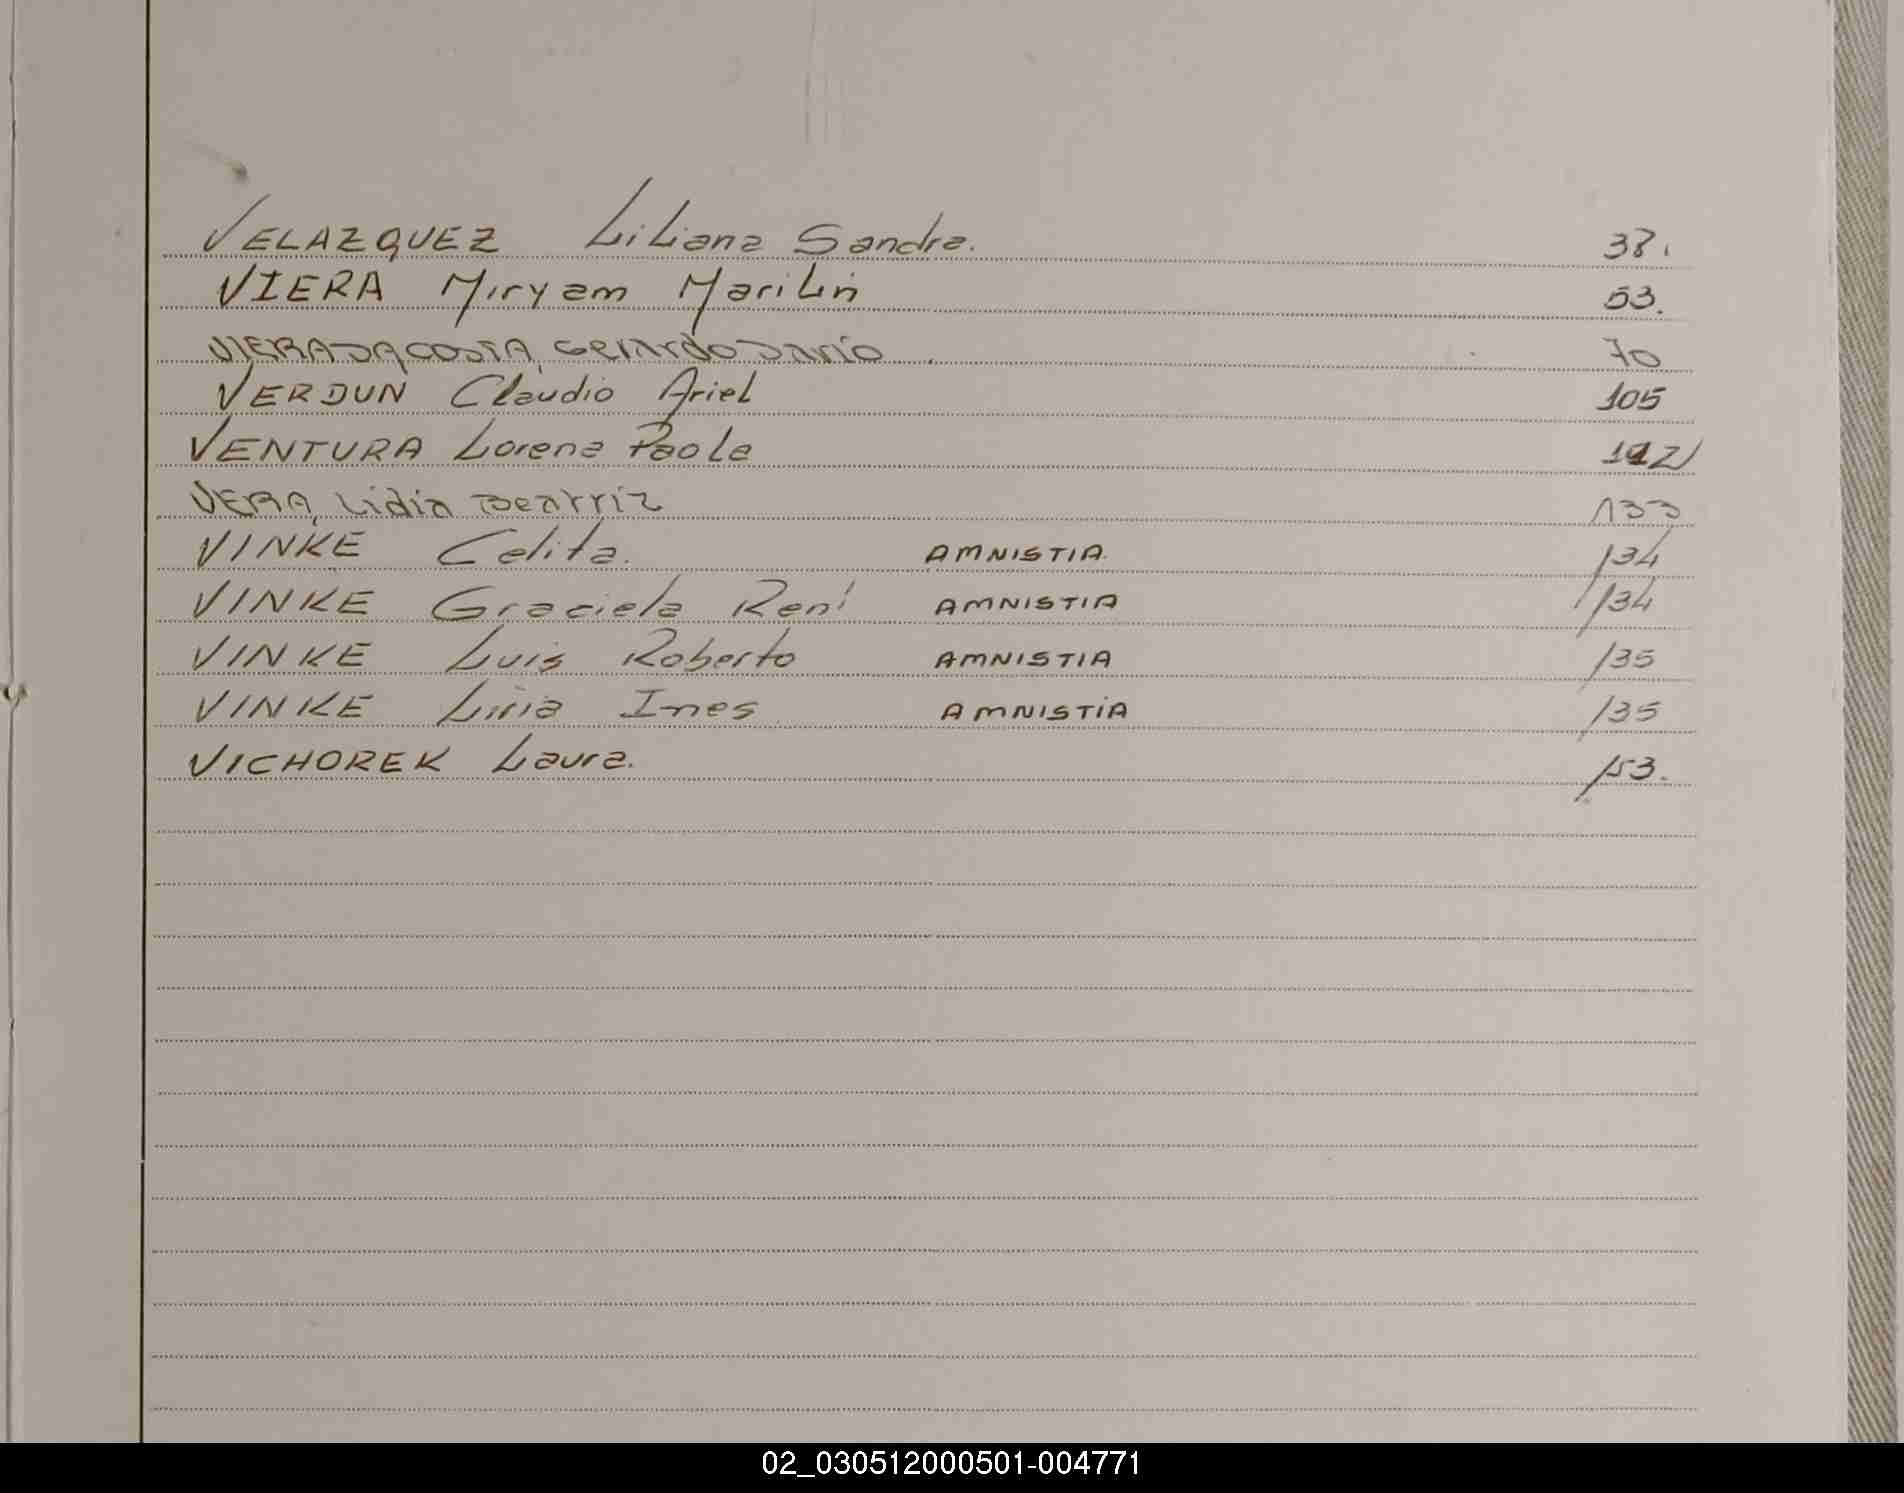 VELAZQUEZ Liliana Sandra. 38.
VIERA Miryam Marilin 53.
VIERA DACOSTA, Gerardo Dario 70
VERDUN Claudio Ariel 105
VENTURA Lorena Paola 112
VERA, Lidia Beatriz 133
VINKE Celita. AMNISTIA. 134
VINKE Graciela Reni AMNISTIA 134
VINKE Luis Roberto AMNISTIA 135
VINKE Liria Ines AMNISTIA 135
VICHOREK Laura. 153.
02_030512000501-004771